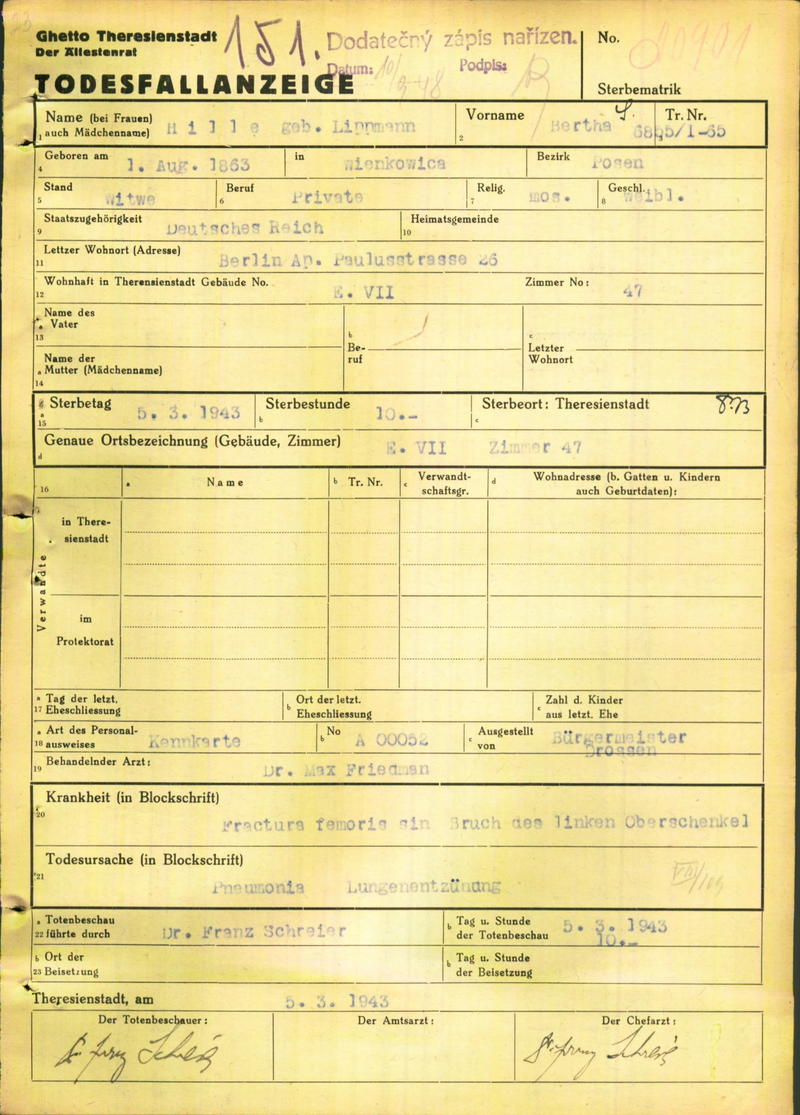 Ghetto Theresienstadt
Der Ältestenrat
151.
Dodatečný zápis nařízen.
Datum: Podpis:
No.
TODESFALLANZEIGE
Sterbematrik
Name (bei Frauen)
1 auch Mädchenname) Hille geb. Lippmann
Vorname
2 Bertha
Tr. Nr.
Geboren am
4 1. Aug. 1863
in Wienkowica
Bezirk Posen
Stand
5 Witwe
Beruf
6 Private
Relig.
7 mos.
Geschl.
8 weibl.
Staatszugehörigkeit
9 Deutsches Reich
Heimatsgemeinde
10
Lettzer Wohnort (Adresse)
11 Berlin Ap. Paulusstrasse 26
Wohnhaft in Therensienstadt Gebäude No.
12 E. VII
Zimmer No: 47
Name des
a Vater
13
b
Be-
ruf
c
Letzter
Wohnort
Name der
a Mutter (Mädchenname)
14
Sterbetag
a
15 5. 3. 1943
Sterbestunde
b 10.-
Sterbeort: Theresienstadt
c
Genaue Ortsbezeichnung (Gebäude, Zimmer)
d E. VII Zimmer 47
16
a Name
b Tr. Nr.
c Verwandt-
schaftsgr.
d Wohnadresse (b. Gatten u. Kindern
auch Geburtdaten):
Verwandte
in There-
sienstadt
im
Protektorat
a Tag der letzt.
17 Eheschliessung
b Ort der letzt.
Eheschliessung
c Zahl d. Kinder
aus letzt. Ehe
a Art des Personal-
18 ausweises Kennkarte
b No A 00052
c Ausgestellt
von Bürgermeister
Drossen
Behandelnder Arzt:
19 Dr. Max Friedman
Krankheit (in Blockschrift)
20 Fractura femoris sin Bruch des linken Oberschenkel
Todesursache (in Blockschrift)
21 Pneumonia Lungenentzünung
a Totenbeschau
22 führte durch Dr. Franz Schreier
b Tag u. Stunde
der Totenbeschau 5. 3. 1943
10.-
b Ort der
23 Beisetzung
b Tag u. Stunde
der Beisetzung
Theresienstadt, am 5. 3. 1943
Der Totenbeschauer:
Der Amtsarzt:
Der Chefarzt: